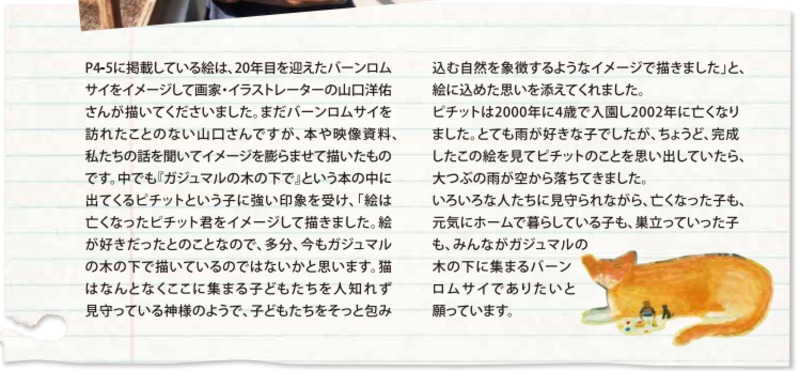 P4-5に掲載している絵は、20年目を迎えたバーンロム
サイをイメージして画家・イラストレーターの山口洋佑
さんが描いてくださいました。まだバーンロムサイを
訪れたことのない山口さんですが、本や映像資料、
私たちの話を聞いてイメージを膨らませて描いたもの
です。中でも『ガジュマルの木の下で』という本の中に
出てくるピチットという子に強い印象を受け、「絵は
亡くなったピチット君をイメージして描きました。絵
が好きだったとのことなので、多分、今もガジュマル
の木の下で描いているのではないかと思います。猫
はなんとなくここに集まる子どもたちを人知れず
見守っている神様のようで、子どもたちをそっと包み
込む自然を象徴するようなイメージで描きました」と、
絵に込めた思いを添えてくれました。
ピチットは2000年に4歳で入園し2002年に亡くなり
ました。とても雨が好きな子でしたが、ちょうど、完成
したこの絵を見てピチットのことを思い出していたら、
大つぶの雨が空から落ちてきました。
いろいろな人たちに見守られながら、亡くなった子も、
元気にホームで暮らしている子も、巣立っていった子
も、みんながガジュマルの
木の下に集まるバーン
ロムサイでありたいと
願っています。